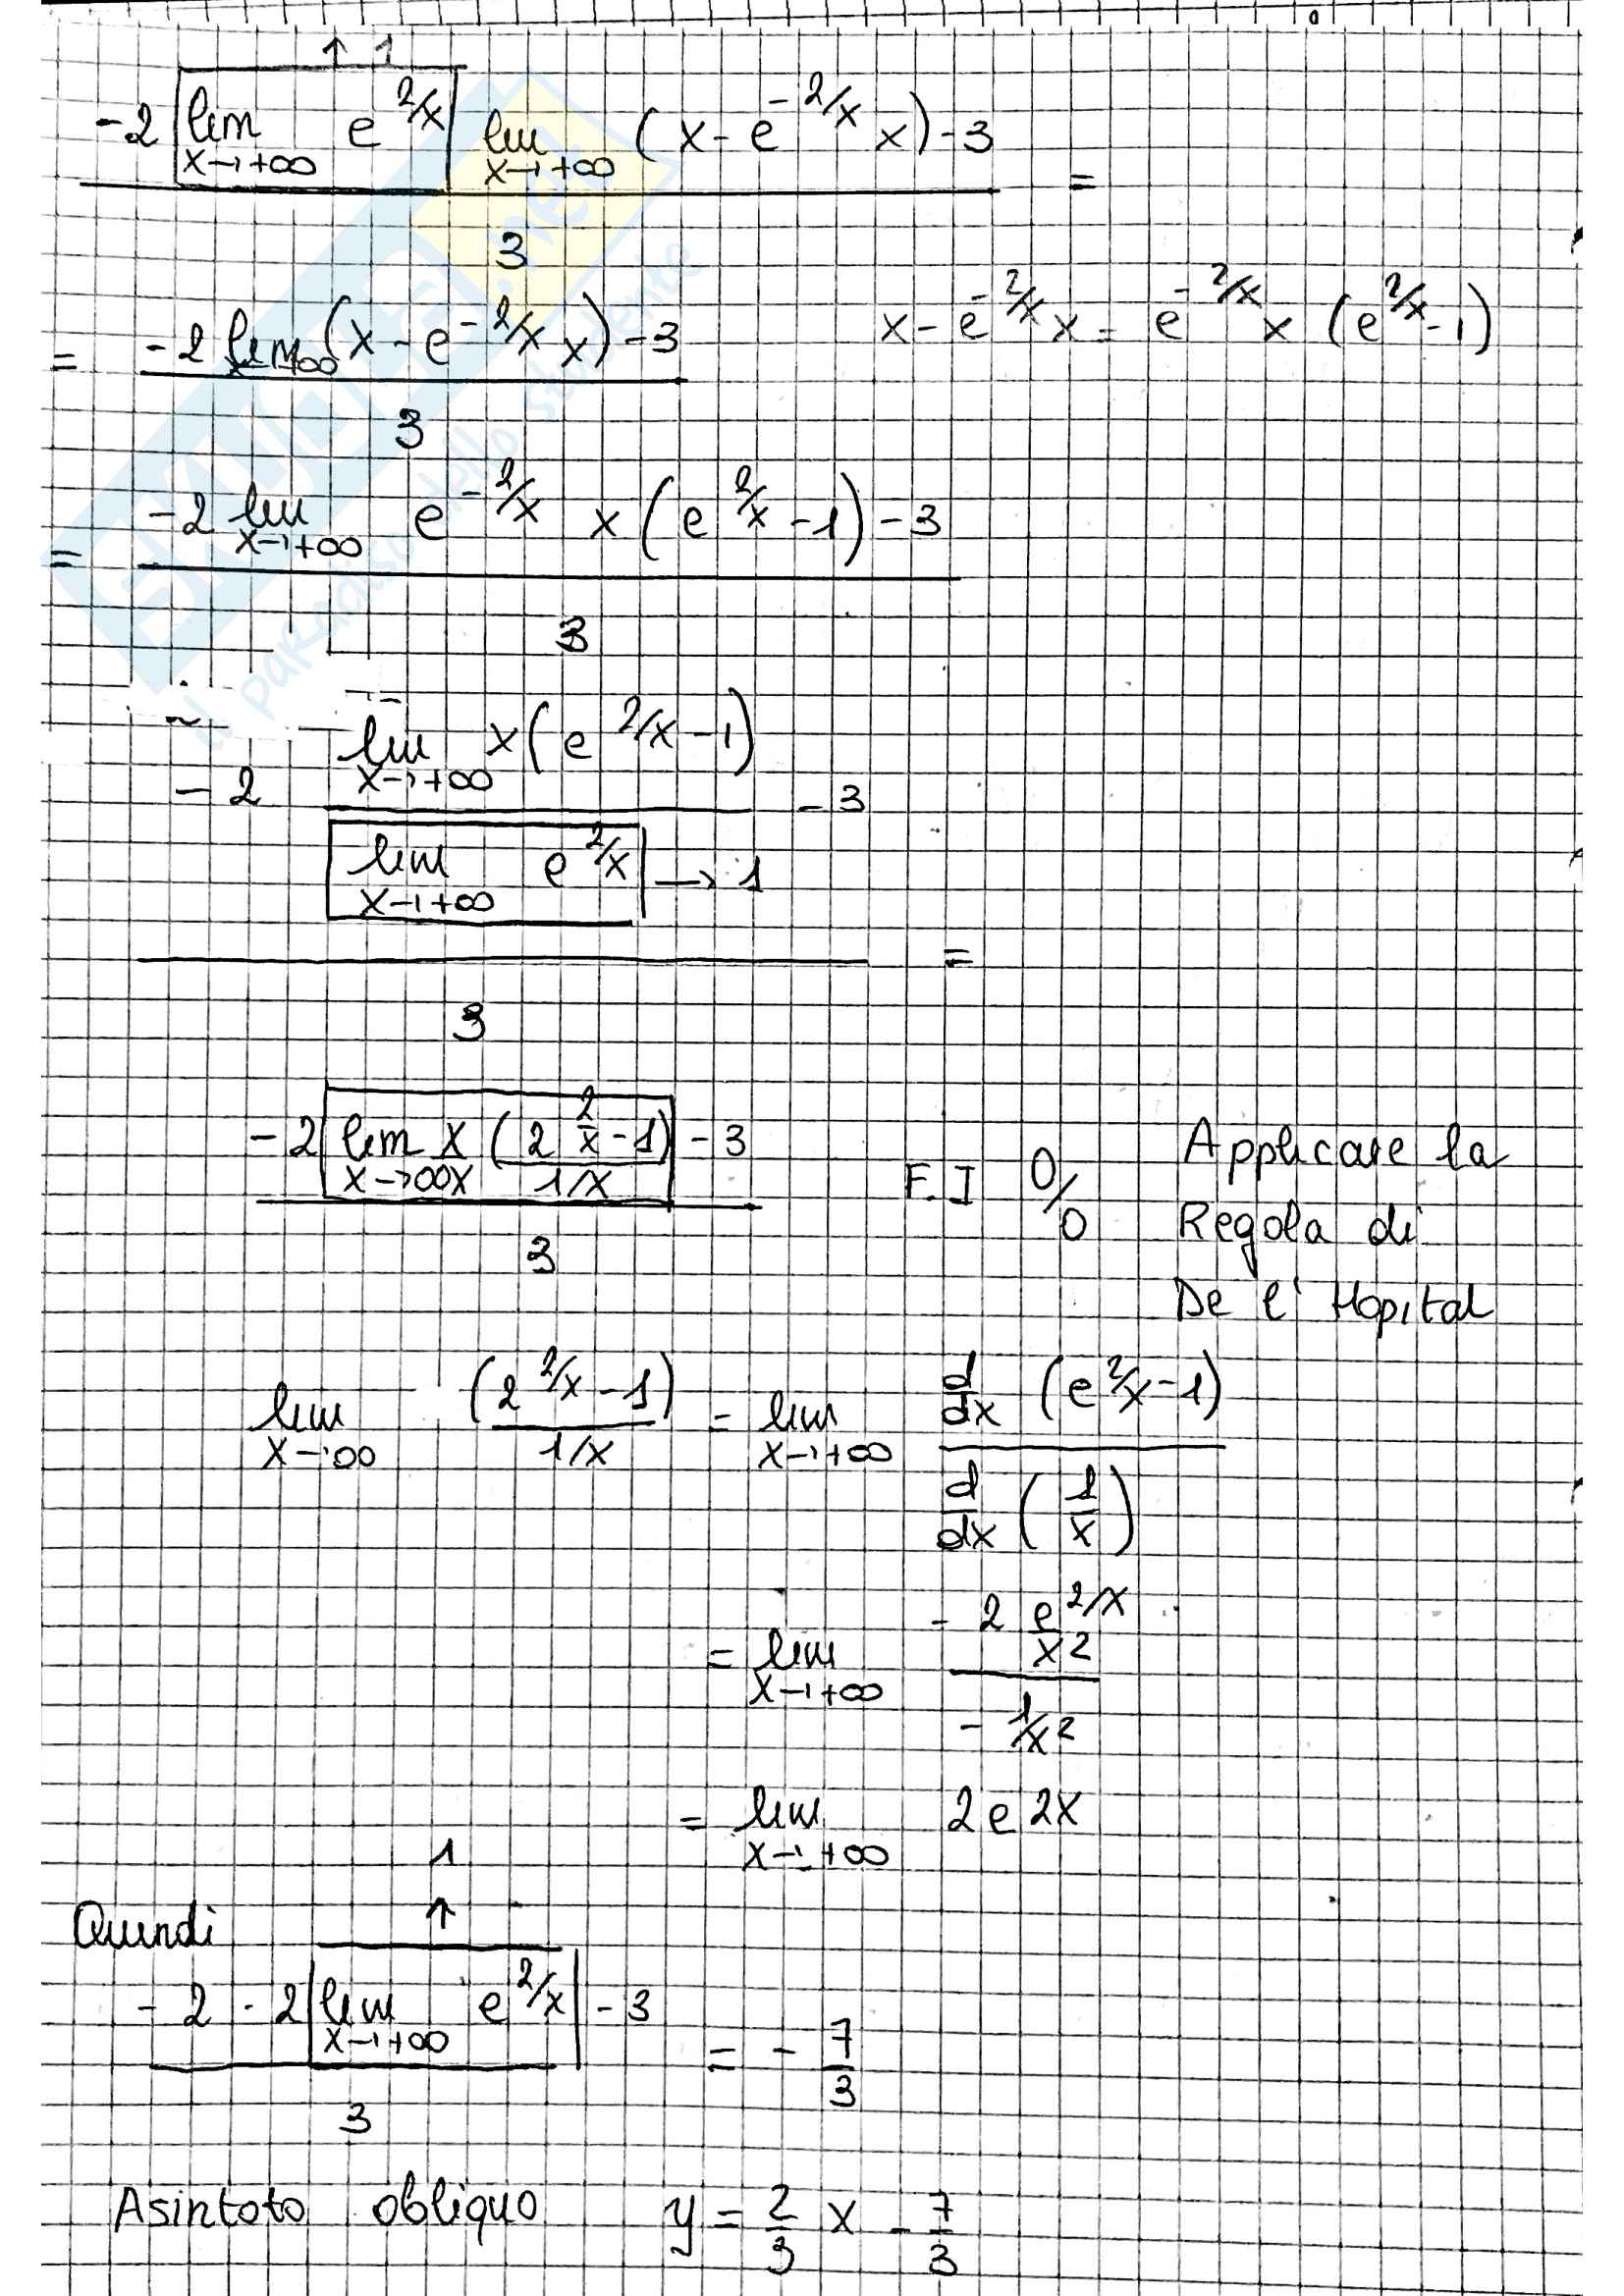 ↑ 1
-2 lim x→+∞ e^2/x lim x→+∞ (x - e^-2/x x) - 3 =
3
= -2 lim x→+∞ (x - e^-2/x x) - 3 x - e^-2/x x = e^-2/x x (e^2/x - 1)
3
= -2 lim x→+∞ e^-2/x x (e^2/x - 1) - 3
3
-2 lim x→+∞ x (e^2/x - 1) - 3
lim x→+∞ e^2/x → 1
=
3
-2 lim x→∞ x x (2^2/x - 1) 1/x - 3
3
F.I 0/0 Applicare la
Regola di
De l' Hopital
lim x→∞ (2^2/x - 1) / 1/x = lim x→+∞ d/dx (e^2/x - 1) / d/dx (1/x)
= lim x→+∞ -2 e^2/x / x2 / -1/x2
= lim x→+∞ 2 e 2x
1
↑
Quindi
-2 · 2 lim x→+∞ e^2/x - 3 = - 7/3
3
Asintoto obliquo y = 2/3 x - 7/3
SKUOLA.net
il paradiso dello studente